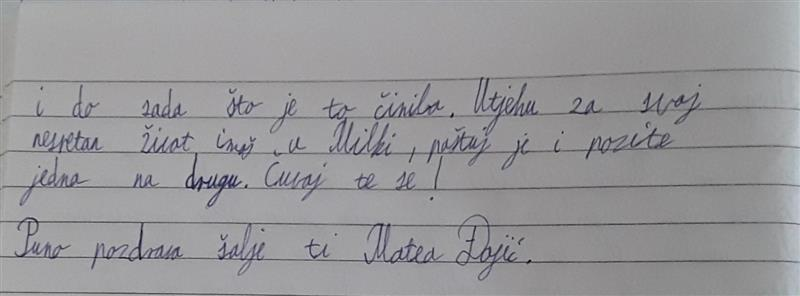 i do sada što je to činila. Utjehu za svoj
nesretan život imaš u Milki, paštuj je i pozite
jedna na drugu. Čuvaj te se!
Puno pozdrava šalje ti Matea Đojić.